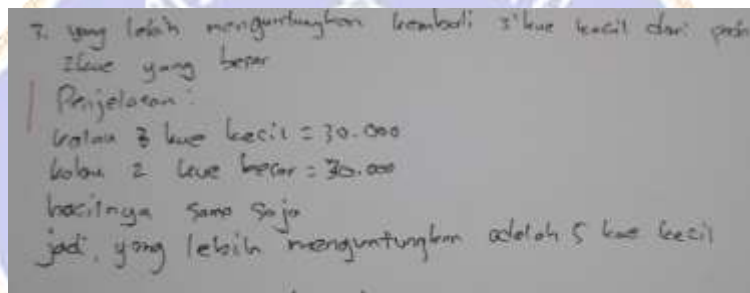 7. yang lebih menguntungkan kembali 3 kue kecil dari pada
2 kue yang besar
Penjelasan :
kalau 3 kue kecil = 30.000
kalau 2 kue besar = 30.000
hasilnya sama saja
jadi, yang lebih menguntungkan adalah 5 kue kecil